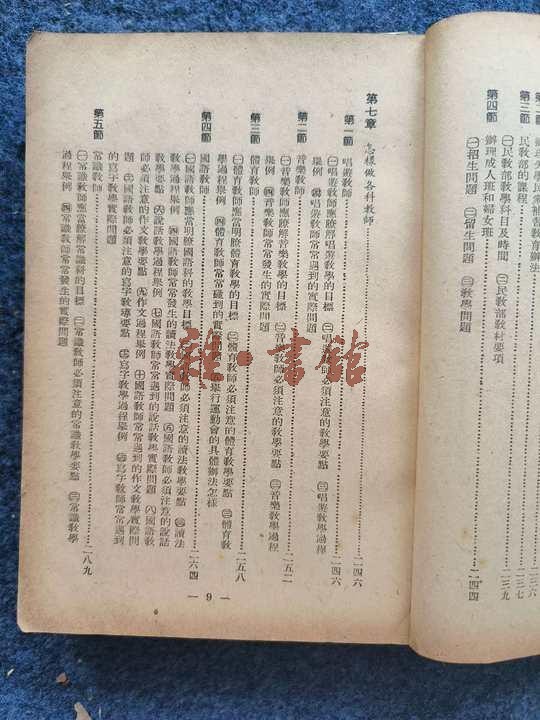 辦理成人班和婦女班
第三節
民教部的課程
㊀民教部教學科目及時間　㊁民教部教材要項
一三七
第四節
一三九
㊀招生問題　㊁留生問題　㊂教學問題
一四四
第七章　怎樣做各科教師
二四六
第一節　唱遊教師
二四六
㊀唱遊教師應瞭解唱遊教學的目標　㊁唱遊教師必須注意的教學要點　㊂唱遊教學過程
舉例　㊃唱遊教師常常遇到的實際問題
第二節　音樂教師
二五二
㊀音樂教師應瞭解音樂教學的目標　㊁音樂教師必須注意的教學要點　㊂音樂教學過程
舉例　㊃音樂教師常常發生的實際問題
第三節　體育教師
二五八
㊀體育教師應當明瞭體育教學的目標　㊁體育教師必須注意的體育教學要點　㊂體育教
學過程舉例　㊃體育教師常常碰到的實際問題　舉行運動會的具體辦法怎樣
第四節　國語教師
二六四
㊀國語教師應當明瞭國語科的教學目標　必須注意的讀法教學要點　㊂讀法
教學過程舉例　㊃國語教師常常發生的讀法教學實際問題　國語教師必須注意的說話
教學要點　㊅說話教學過程舉例　國語教師常常遇到的說話教學實際問題　㊇國語教
師必須注意的作文教學要點　㊈作文過程舉例　㊉國語教師常常遇到的作文教學實際問
題　國語教師必須注意的寫字教導要點　寫字教學過程舉例　寫字教師常常遇到
的寫字教學實際問題
第五節　常識教師
二八九
㊀常識教師應當瞭解常識科的目標　㊁常識教師必須注意的常識教學要點　㊂常識教學
過程舉例　㊃常識教師常常發生的實際問題
— 9 —
雜·書館